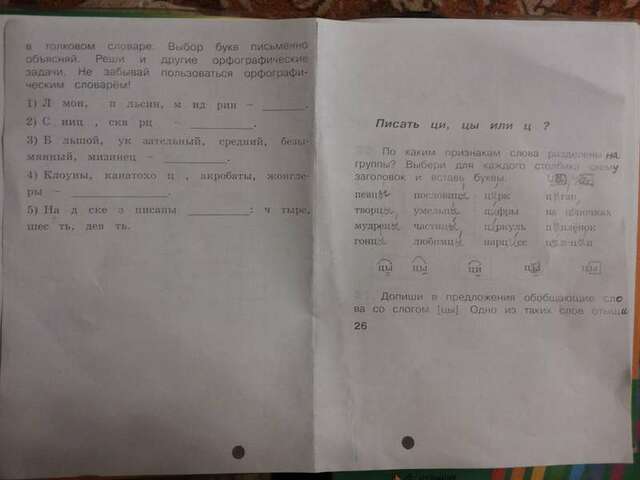 в толковом словаре. Выбор букв письменно
объясняй. Реши и другие орфографические
задачи. Не забывай пользоваться орфографи-
ческим словарём!
1) Л мон, п льсин, м нд рин – ______.
2) С ниц , скв рц – ______.
3) Б льшой, ук зательный, средний, безы-
мянный, мизинец – ______.
4) Клоуны, канатохо ц , акробаты, жонглё-
ры – ______.
5) На д ске з писаны ______: ч тыре,
шес ть, дев ть.
Писать ци, цы или ц ?
По каким признакам слова разделены на
группы? Выбери для каждого столбика схему
заголовок и вставь буквы.
певцы пословицы цирк цыган
творцы умельцы цифры на цыпочках
мудрецы частицы циркуль цыплёнок
гонцы любимцы нарциссе цып-цып
цы цы ци цы цы
Допиши в предложения обобщающие сло
ва со слогом [цы]. Одно из таких слов отыщи
26